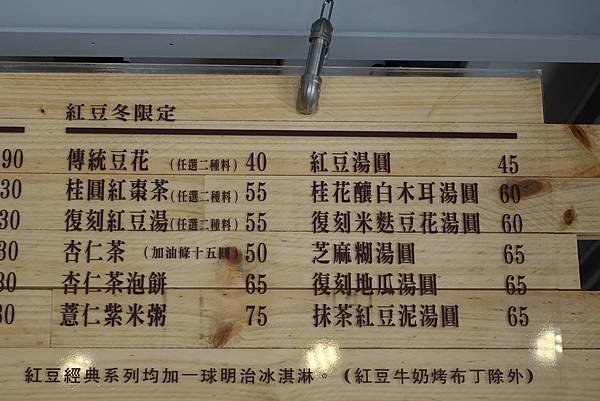 紅豆冬限定
90 傳統豆花 (任選二種料) 40 紅豆湯圓 45
30 桂圓紅棗茶(任選二種料) 55 桂花釀白木耳湯圓 60
30 復刻紅豆湯(任選二種料) 55 復刻米麩豆花湯圓 60
30 杏仁茶 (加油條十五圓) 50 芝麻糊湯圓 65
30 杏仁茶泡餅 65 復刻地瓜湯圓 65
30 薏仁紫米粥 75 抹茶紅豆泥湯圓 65
紅豆經典系列均加一球明治冰淇淋。(紅豆牛奶烤布丁除外)